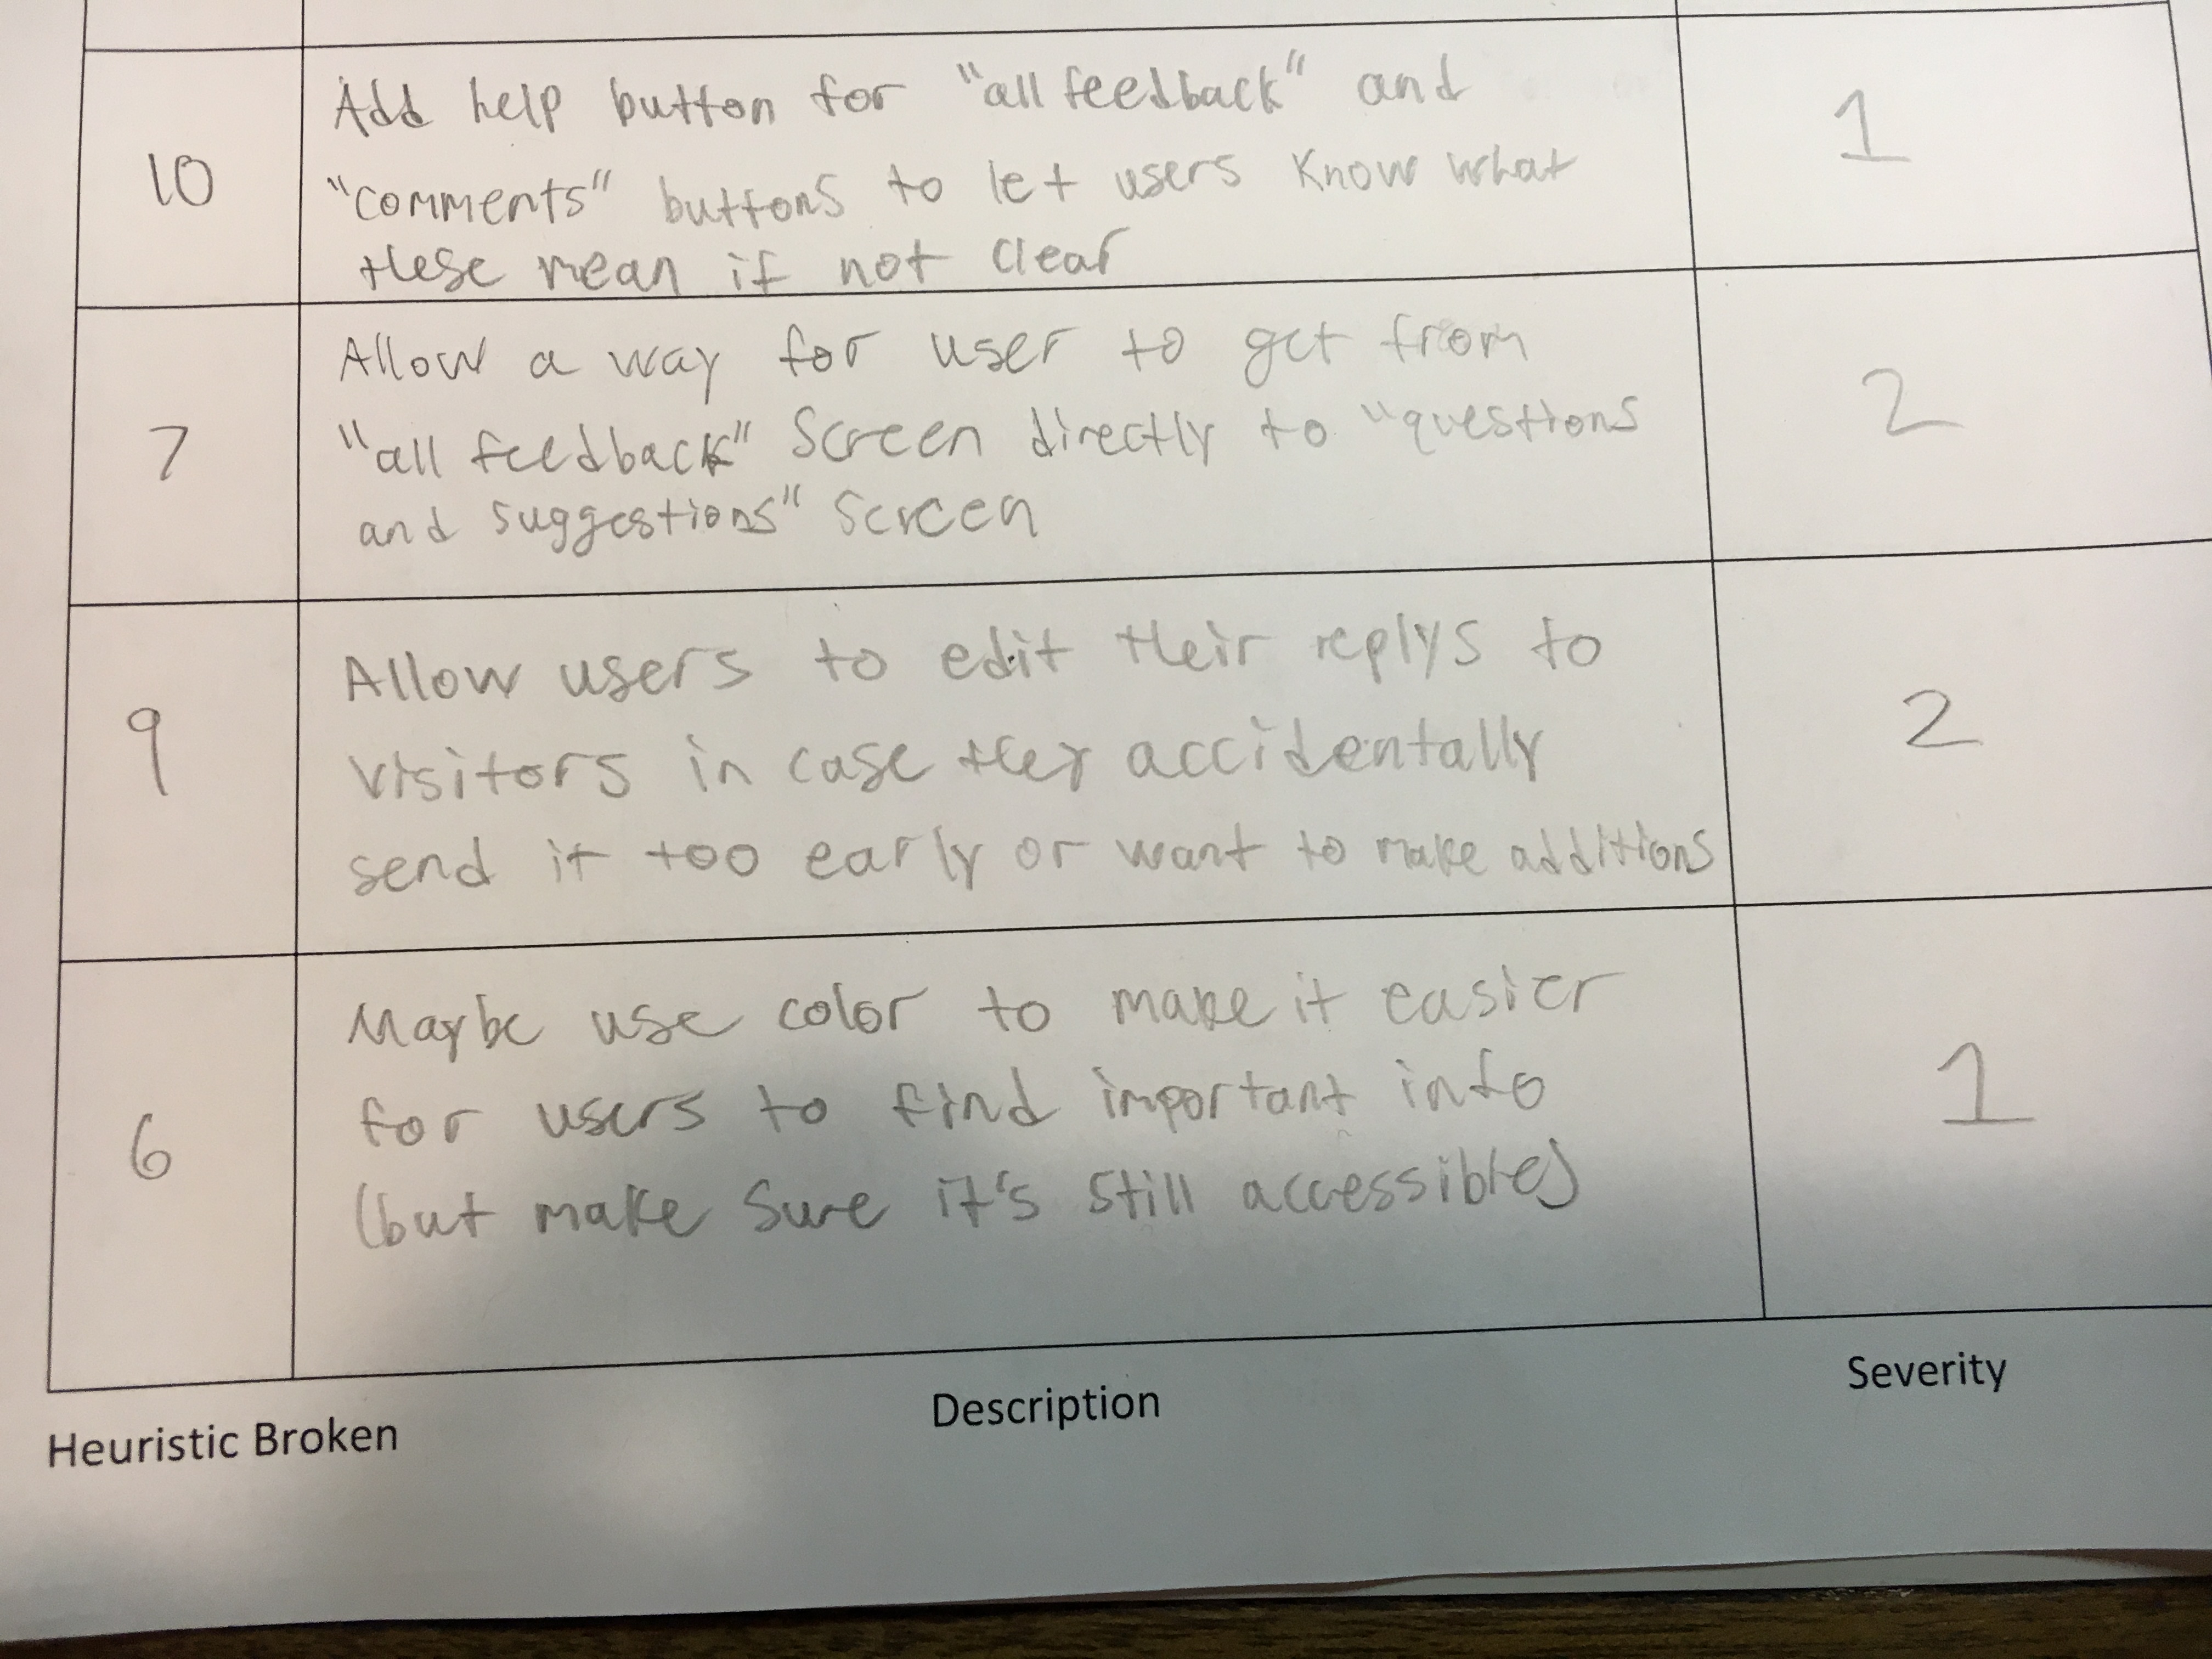 10
Add help button for "all feedback" and
"comments" buttons to let users know what
these mean if not clear
1
7
Allow a way for user to get from
"all feedback" screen directly to "questions
and suggestions" screen
2
9
Allow users to edit their replys to
visitors in case they accidentally
send it too early or want to make additions
2
6
Maybe use color to make it easier
for users to find important info
(but make sure it's still accessible)
1
Heuristic Broken
Description
Severity